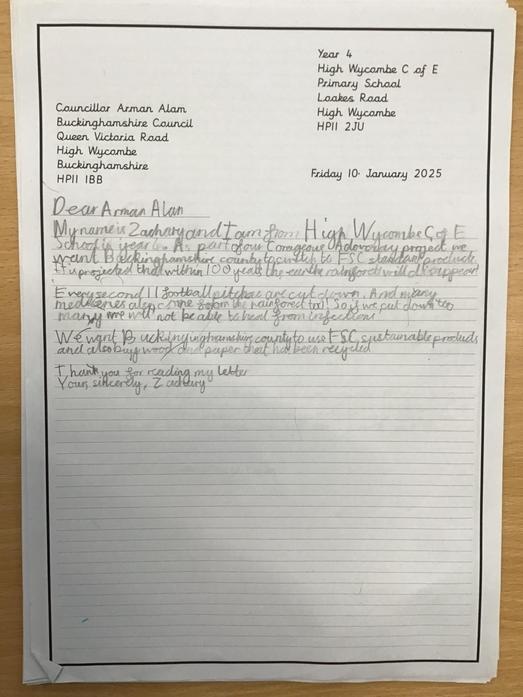 Year 4
High Wycombe C of E
Primary School
Loakes Road
High Wycombe
HP11 2JU
Councillor Arman Alam
Buckinghamshire Council
Queen Victoria Road
High Wycombe
Buckinghamshire
HP11 1BB
Friday 10 January 2025
Dear Arman Alan
My name is Zachary and I am from High Wycombe C of E
School in year 4. As part of our Corageous Advovacy project we
want Buckinghamshire county to switch to FSC standard products.
It is projected that within 100 years the earths rainforests will dissappear!
Every second 11 football pitches are cut down. And many
medicenes also come from the rainforest too! So if we put down too
many we will not be able to heal from infections.
We want Buckinyinghamshire county to use FSC sustainable products
and also buy wood and paper that has been recycled
Thank you for reading my letter
Yours sincerely, Zachary